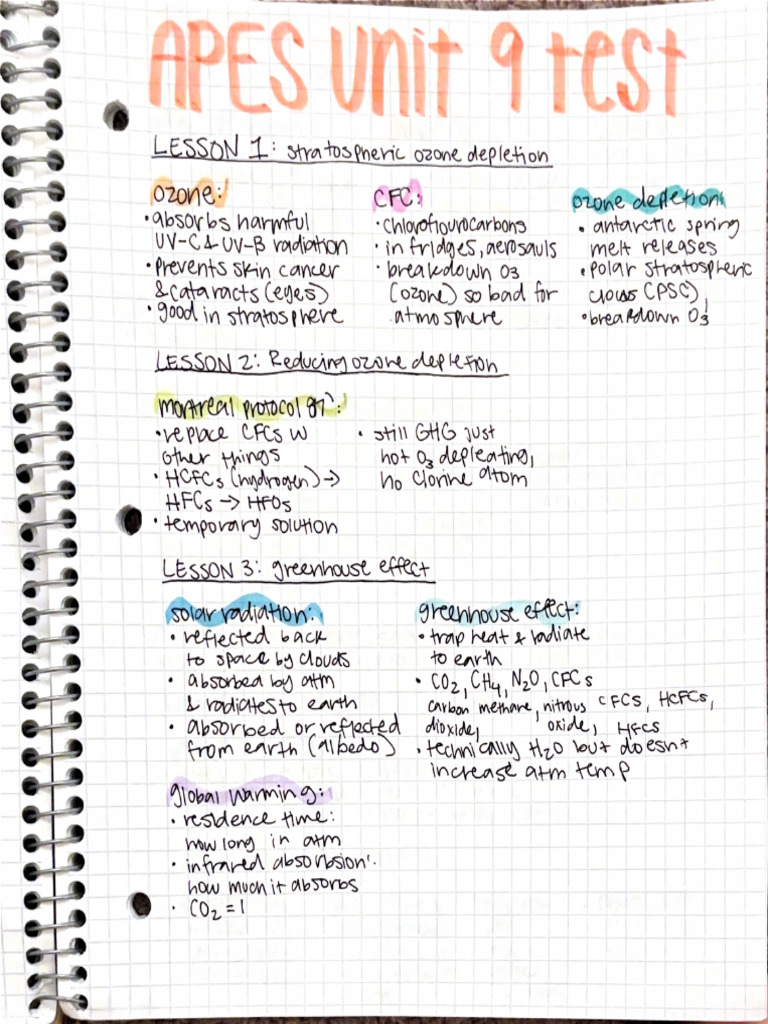 APES Unit 9 test
LESSON 1: stratospheric ozone depletion
ozone:
• absorbs harmful
UV-C & UV-B radiation
• prevents skin cancer
& cataracts (eyes)
• good in stratosphere
CFC:
• chloroflourocarbons
• in fridges, aerosauls
• breakdown O3
(ozone) so bad for
atmosphere
ozone depletion:
• antarctic spring
melt releases
• polar stratospheric
clouds (PSC),
• breakdown O3
LESSON 2: Reducing ozone depletion
montreal protocol 87':
• replace CFCs w
other things
• HCFCs (hydrogen) →
HFCs → HFOs
• temporary solution
• still GHG just
not O3 depleating,
no clorine atom
LESSON 3: greenhouse effect
solar radiation:
• reflected back
to space by clouds
• absorbed by atm
& radiates to earth
• absorbed or reflected
from earth (albedo)
greenhouse effect:
• trap heat & radiate
to earth
• CO2, CH4, N2O, CFCs
carbon methane, nitrous CFCS, HCFCs,
dioxide, oxide, HFCS
• technically H2O but doesnt
increase atm temp
global warming:
• residence time:
how long in atm
• infrared absorbsion:
how much it absorbs
• CO2 = 1